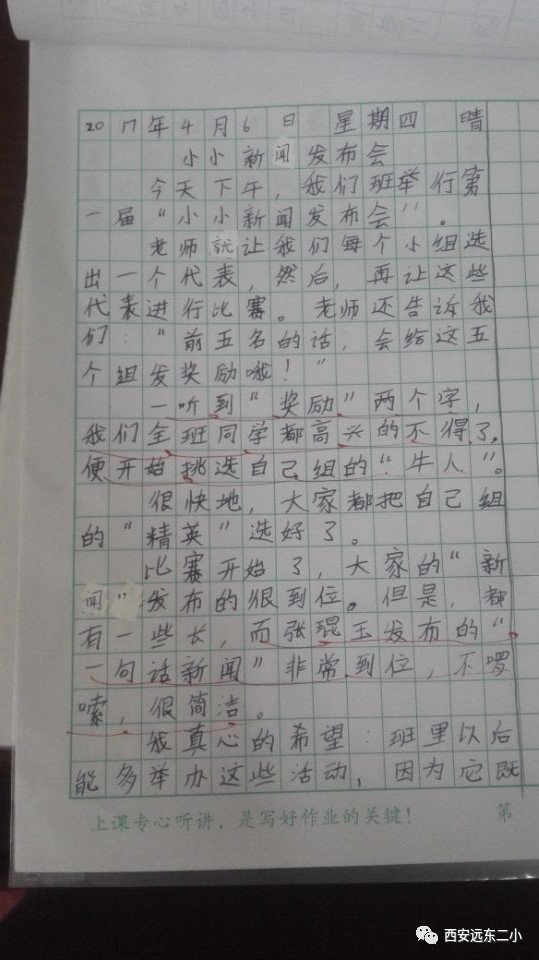 2017年4月6日 星期四 晴
小小新闻发布会
今天下午，我们班举行第
一届“小小新闻发布会”。
老师就让我们每个小组选
出一个代表，然后，再让这些
代表进行比赛。老师还告诉我
们：“前五名的话，会给这五
个组发奖励哦！”
一听到“奖励”两个字，
我们全班同学都高兴的不得了，
便开始挑选自己组的“牛人”。
很快地，大家都把自己组
的“精英”选好了。
比赛开始了，大家的“新
闻”发布的很到位。但是，都
有一些长，而张琨玉发布的“
一句话新闻”非常到位，不啰
嗦，很简洁。
我真心的希望：班里以后
能多举办这些活动，因为它既
上课专心听讲，是写好作业的关键！ 第
西安远东二小